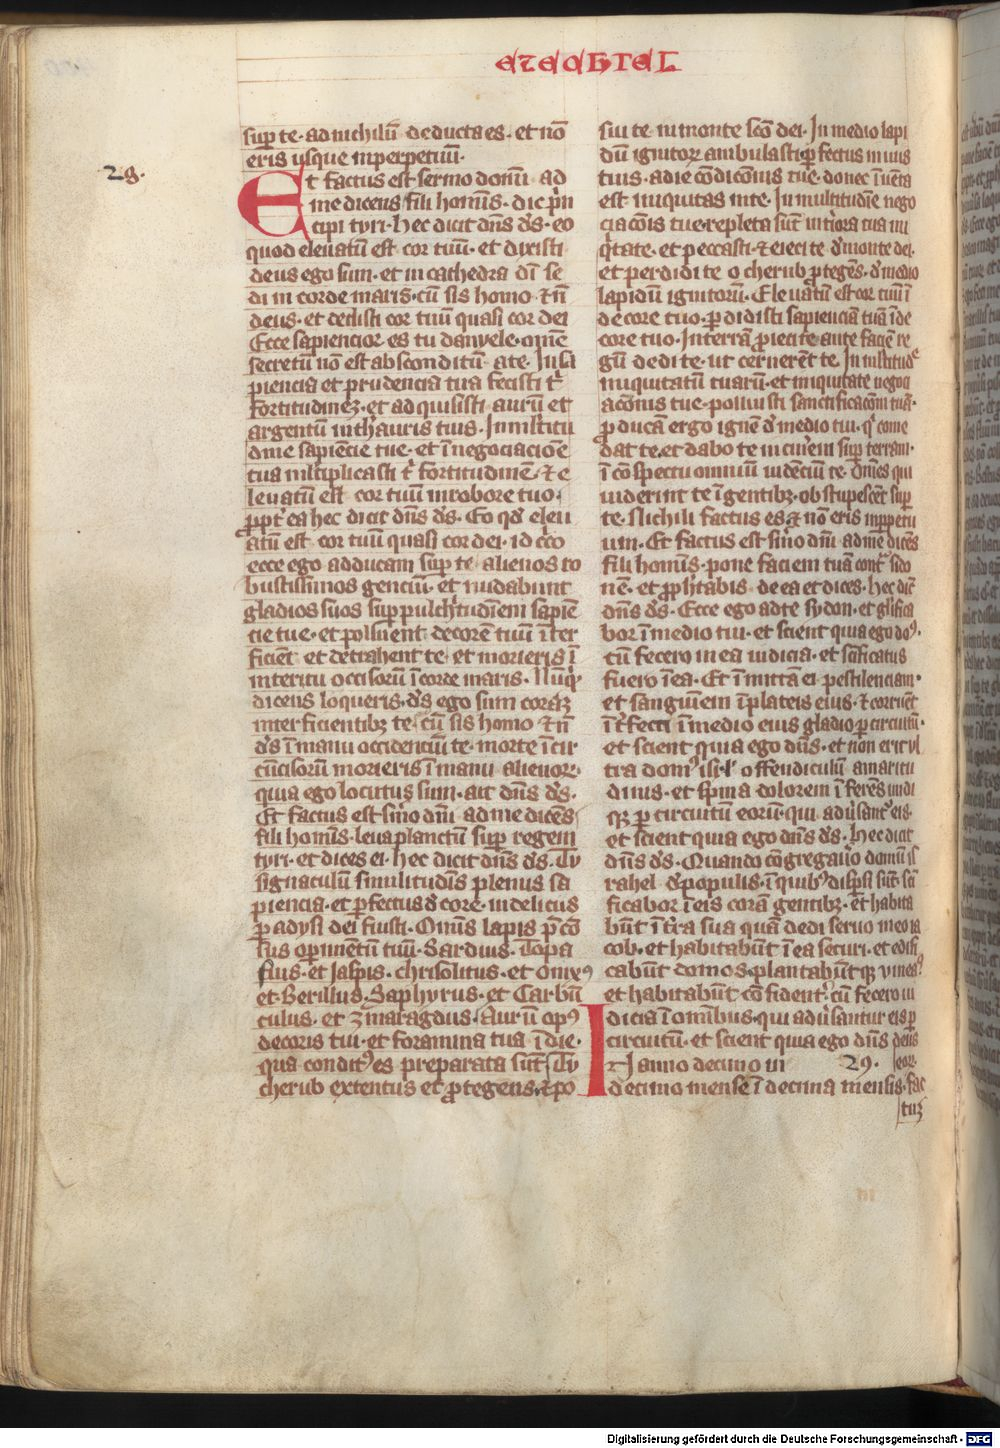 EZECHIEL
28.
sup te· ad nichilū deducta es· et nō
eris usque inperpetuū·
Et factus est sermo domī ad
me dicens fili homīs· dic prin
cipi tyri· Hec dicit dn̄s ds̄· eo
quod eleuatū est cor tuū· et dixisti
deus ego sum· et in cathedra dī se
di in corde maris· cū sis homo & n̄
deus· et dedisti cor tuū quasi cor dei
Ecce sapiencior es tu danyele· omē
secretū nō est absconditū a te· In sa
piencia et prudencia tua fecisti tͥ
fortitudinez· et adquisisti aurū et
argentū in thauris tuis· In mltitu
dine sapiencie tue· et ī negociacioē
tua mltiplicasti tͥ fortitudinē· & e
leuatū est cor tuū in robore tuo·
ꝓpt̓ ea hec dicit dn̄s ds̄· Eo qd̓ eleu
atū est cor tuū quasi cor dei· id cco
ecce ego adducam sup te alienos ro
bustissimos genciū· et nudabunt
gladios suos sup pulchͥtudīem sapiē
cie tue· et polluent decorē tuū īter
ficiēt et detrahent te et morieris ī
interitu occisorū ī corde maris· Nūqͥd
dicens loqueris· ds̄ ego sum coraz
interficientibz te· cū sis homo & n̄
ds̄ ī manu occidenciū te· morte īcir
cūcisorū morieris ī manu alienoꝝ·
quia ego locutus sum· ait dn̄s ds̄·
Et factus est sm̄o dn̄i ad me dicēs
fili homīs· leua planctū sup regem
tyri· et dices ei· hec dicit dn̄s ds̄· Tu
signaculū similitudīs plenus sa
piencia· et pfectus d̓core· in delicijs
padysi dei fuisti· Omīs lapis pͥcio
sus opimentū tuū· Sardius· Topa
sius· et Jaspis· chrisolitus· et Onixꝰ
et· Berillus· Saphyrus· et Carbū
culus· et zmaragdus· Aurū opꝰ
decoris tui· et foramina tua ī die·
qua conditꝰ es preparata sūt· Tu
cherub extentus et ꝓtegens· & po
sui te in monte scō dei· In medio lapi
dū ignitoꝝ ambulasti· pfectus in uiis
tuis· a die cōdicōnis tue· donec īuēta
est iniquitas in te· In multitudīe nego
ciacōis tue· repleta sūt intͥora tua ini
qͥtate· et peccasti· & eieci te d̓ monte dei·
et perdidi te o cherub ptegēs· d̓ medio
lapidū ignitorū· Eleuatū est cor tuū ī
decore tuo· pdidisti sapienciā tuā ī de
core tuo· In terrā ꝓieci te ante faciē re
gū dedi te· ut cernerēt te· In mltitud̓
iniquitatū tuarū· et iniquitate negoci
acōnis tue· polluisti sanctificacōm tuā·
pducam ergo ignē d̓ medio tui· qͥ come
dat te· et dabo te in cin̓em sup terram·
ī cōspectu omniū uidēciū te· Om̄es qui
uiderint te ī gentibz· obstupescēt sup
te· Nichili factus es· & nō eris inppetu
um· Et factus est sm̄o dn̄i ad me dicēs
fili homīs· pone faciem tuā contͣ sido
nē· et ꝓphͥtabis de ea et dices· hec dic̄
dn̄s ds̄· Ecce ego ad te sydon· et glͥfica
bor ī medio tui· et scient quia ego doꝰ·
cū fecero in ea iudicia· et scīficatus
fuero ī ea· Et ī mittā ei pestilenciam·
et sanguīem ī plateis eius· & corruēt
ītͥfecti ī medio eius gladio p circuitū·
et scient quia ego dn̄s· et non erit vl
tra domͥ isrl̓ offendiculū amaritu
dinis· et spina dolorem īferēs undi
qꝫ p circuitū eorū· qui adu̓sant̓ eis·
et scient quia ego dn̄s ds̄· Hec dicit
dn̄s ds̄· Quando cōgregau̓o domū is
rahel d̓ populis· ī quibꝰ disp̄si sūt· scī
ficabor ī eis corā gentibz· et habita
būt ī tr̄a sua quā dedi seruo meo ia
cob· et habitabūt ī ea securi· et edifi
cabūt domos· plantabūt qꝫ vineas
et habitabūt cōfident̓· cū fecero iu
dicia ī omībus· qui adu̓santur eis p
circuitū· et scient quia ego dn̄s deus
In anno decimo in 29. eoꝝ·
decimo mense ī decima mensis· fac
tuz
Digitalisierung gefördert durch die Deutsche Forschungsgemeinschaft - DFG